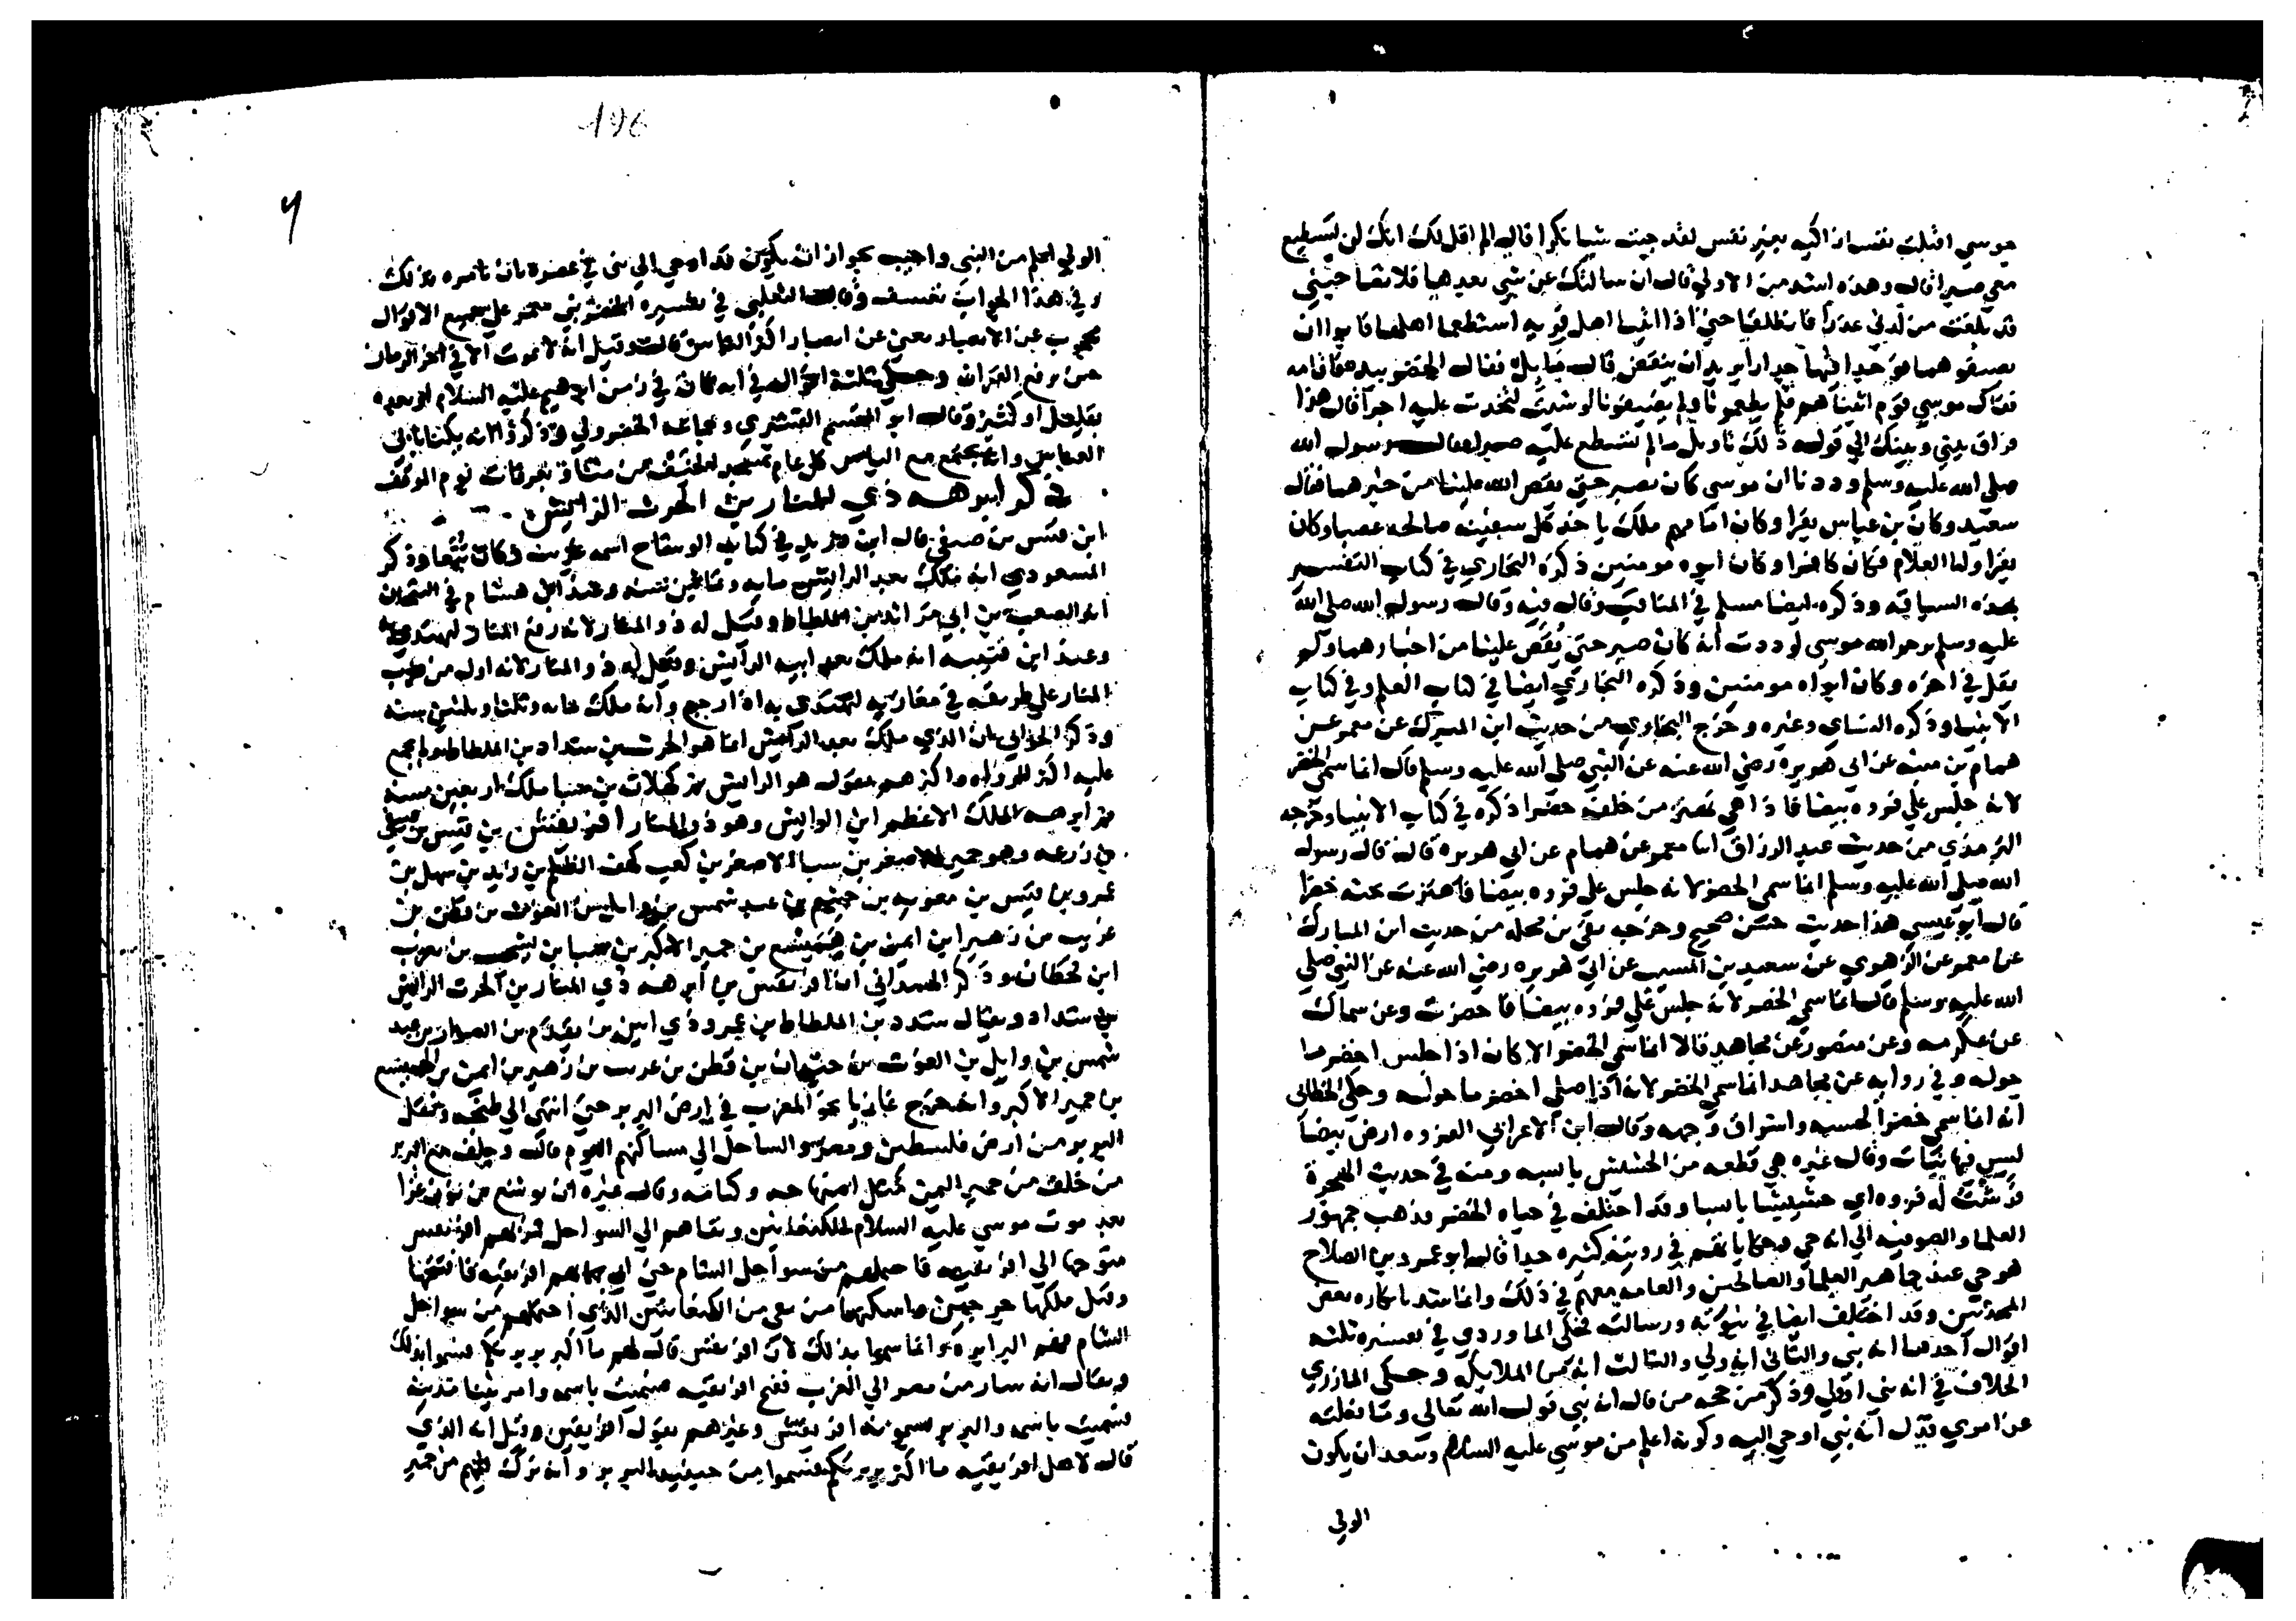 موسي اقتلت نفسا زاكيه بغير نفس لقد جيت شيا نكرا قال الم اقل لك انك لن تستطيع
معي صبرا قال وهذه اشد من الاولي قال ان سالتك عن شي بعدها فلا تصاحبني
قد بلغت من لدني عذرا فانطلقا حتي اذا اتيا اهل قريه استطعما اهلها فابوا ان
يضيفوهما فوجدا فيها جدارا يريد ان ينقض قال مايل فقال الخضر بيده فاقامه
فقال موسي قوم اتيناهم فلم يطعمونا ولم يضيفونا لو شيت لتخذت عليه اجرا قال هذا
فراق بيني وبينك الي قوله ذلك تاويل ما لم تسطع عليه صبرا فقال رسول الله
صلي الله عليه وسلم وددنا ان موسي كان صبر حتي يقص الله علينا من خبرهما فقال
سعيد وكان بن عباس يقرا وكان امامهم ملك ياخذ كل سفينه صالحه غصبا وكان
يقرا واما الغلام فكان كافرا وكان ابوه مومنين ذكره البخاري في كتاب التفسير
بهذه السياقه وذكره ايضا مسلم في المناقب وقال فيه وقال رسول الله صلي الله
عليه وسلم يرحم الله موسي لوددت انه كان صبر حتي يقص علينا من اخبارهما ولم
يقل في اخره وكان ابواه مومنين وذكره البخاري ايضا في كتاب العلم وفي كتاب
الانبيا وذكره النساي وغيره وخرج البخاري من حديث ابن المبرك عن معمر عن
همام بن منبه عن ابي هريره رضي الله عنه عن النبي صلي الله عليه وسلم قال انما سمي الخضر
لانه جلس علي فروه بيضا فاذا هي تهتز من خلفه خضرا ذكره في كتاب الانبيا وخرجه
الترمذي من حديث عبد الرزاق انا معمر عن همام عن ابي هريره قال قال رسول
الله صلي الله عليه وسلم انما سمي الخضر لانه جلس علي فروه بيضا فاهتزت تحته خضرا
قال ابو عيسي هذا حديث حسن صحيح وخرجه بقي بن مخلد من حديث ابن المبارك
عن معمر عن الزهري عن سعيد بن المسيب عن ابي هريره رضي الله عنه عن النبي صلي
الله عليه وسلم قال انما سمي الخضر لانه جلس علي فروه بيضا فاخضرت وعن سماك
عن عكرمه وعن منصور عن مجاهد قالا انما سمي الخضر لانه كان اذا جلس اخضر ما
حوله وفي روايه عن مجاهد انما سمي الخضر لانه اذا صلي اخضر ما حوله وحكي الخطابي
انه انما سمي خضرا لحسنه واشراق وجهه وقال ابن الاعرابي الفروه ارض بيضا
ليس فيها نبات وقال غيره هي قطعه من الحشيش يابسه ومنه في حديث الهجرة
فرشت له فروه اي حشيشا يابسا وقد اختلف في حياه الخضر فذهب جمهور
العلما والصوفيه الي انه حي وحكاياتهم في رويته كثيره جدا قال ابو عمرو بن الصلاح
هو حي عند جماهير العلما والصالحين والعامه معهم في ذلك وانما شد بانكاره بعض
المحدثين وقد اختلف ايضا في نبوته ورسالته فحكي الماوردي في تفسيره ثلثه
اقوال احدها انه نبي والثاني انه ولي والثالث انه من الملايكه وحكي المازري
الخلاف في انه نبي او ولي وذكر من حجه من قال انه نبي قول الله تعالي وما فعلته
عن امري فدل انه نبي اوحي اليه وكونه اعلم من موسي عليه السلام ويبعد ان يكون
الولي
196
الولي اعلم من النبي واجيب بجواز ان يكون قد اوحي الي نبي في عصره بان تامره بذلك
وفي هذا الجواب تعسف وقال الثعلبي في تفسيره الخضر نبي معمر علي جميع الاقوال
محجوب عن الابصار يعني عن ابصار اكثر الناس قال وقيل انه لا يموت الا في اخر الزمان
حين يرفع القران وحكي ثلثة اقوال في انه كان في زمن ابراهيم عليه السلام ام بعده
بقليل او كثير وقال ابو القسم القشيري وجماعه الخضر ولي وذكروا انه يكنا بابي
العباس وانه يجتمع مع الياس كل عام بمسجد الخيف من منا وبعرفات يوم الموقف
ذكر ابرهه ذي المنار بن الحرث الرايش
ابن قيس بن صيفي قال ابن دريد في كتاب الوشاح اسمه وكان تبعا وذكر
المسعودي انه ملك بعد الرايش مايه وثمانين سنه وعند ابن هشام في التيجان
انه الصعب بن ابي مراثد بن الملطاط وقيل له ذو المنار لانه رفع المنار ليهتدي به
وعند ابن قتيبه انه ملك بعد ابيه الرايش وقيل له ذو المنار لانه اول من ضرب
المنار علي طريقه في مغازيه ليهتدي به اذا رجع وانه ملك مايه وثلثا وثلثين سنه
وذكر ان الذي ملك بعد الرايش انما هو الحرث بن شداد بن الملطاط ولم يجمع
عليه اكثر الرواه واكثرهم يقول هو الرايش من كهلان بن سبا ملك اربعين سنه
ثم ابرهه الملك الاعظم ابن الرايش وهو ذو المنار افريقش بن قيس بن صيفي
بن زرعه وهو حمير الاصغر بن سبا الاصغر بن كعب كهف الظلم بن زايد بن سهل بن
عمرو بن قيس بن معويه بن جشم بن عبد شمس بن وايل بن الغوث بن قطن بن
عريب بن زهير ابن ايمن بن هميسع بن حمير الاكبر بن سبا بن يشجب بن يعرب
ابن قحطان وذكر الهمداني انه افريقيس بن ابرهه ذي المنار بن الحرث الرايش
بن شداد ويقال سدد بن الملطاط بن عمرو ذي ابين بن يقدم بن الصوار بن عبد
شمس بن وايل بن الغوث بن حيدان بن قطن بن عريب بن زهير بن ايمن بن الهميسع
بن حمير الاكبر وانه خرج غازيا نحو المغرب في ارض البربر حتي انتهي الي طنجه ونقل
البربر من ارض فلسطين ومصر والساحل الي مساكنهم اليوم قال وخلف مع البربر
من خلف من حمير اليمن مثل صنهاجه وكتامه وقال غيره ان يوشع بن نون غزا
بعد موت موسي عليه السلام الكنعانيين ونفاهم الي السواحل فمر بهم افريقس
متوجها الي افريقيه فاحتملهم من سواحل الشام حتي اتي بهم افريقيه فافتتحها
وقتل ملكها جرجير واسكنها من بقي من الكنعانيين الذي احتملهم من سواحل
الشام فهم البرابره وانما سموا بذلك لان افريقش قال لهم ما اكبر بربرتكم فسموا بذلك
ويقال انه سار من مصر الي الغرب ففتح افريقيه فسميت باسمه وامر ببنا مدينه
فسميت باسمه والبربر يسمونه افريقش وغيرهم يقول افريقين وقيل انه الذي
قال لاهل افريقيه ما اكثر بربرتكم فسموا من حينيذ البربر وانه ترك فيهم من حمير